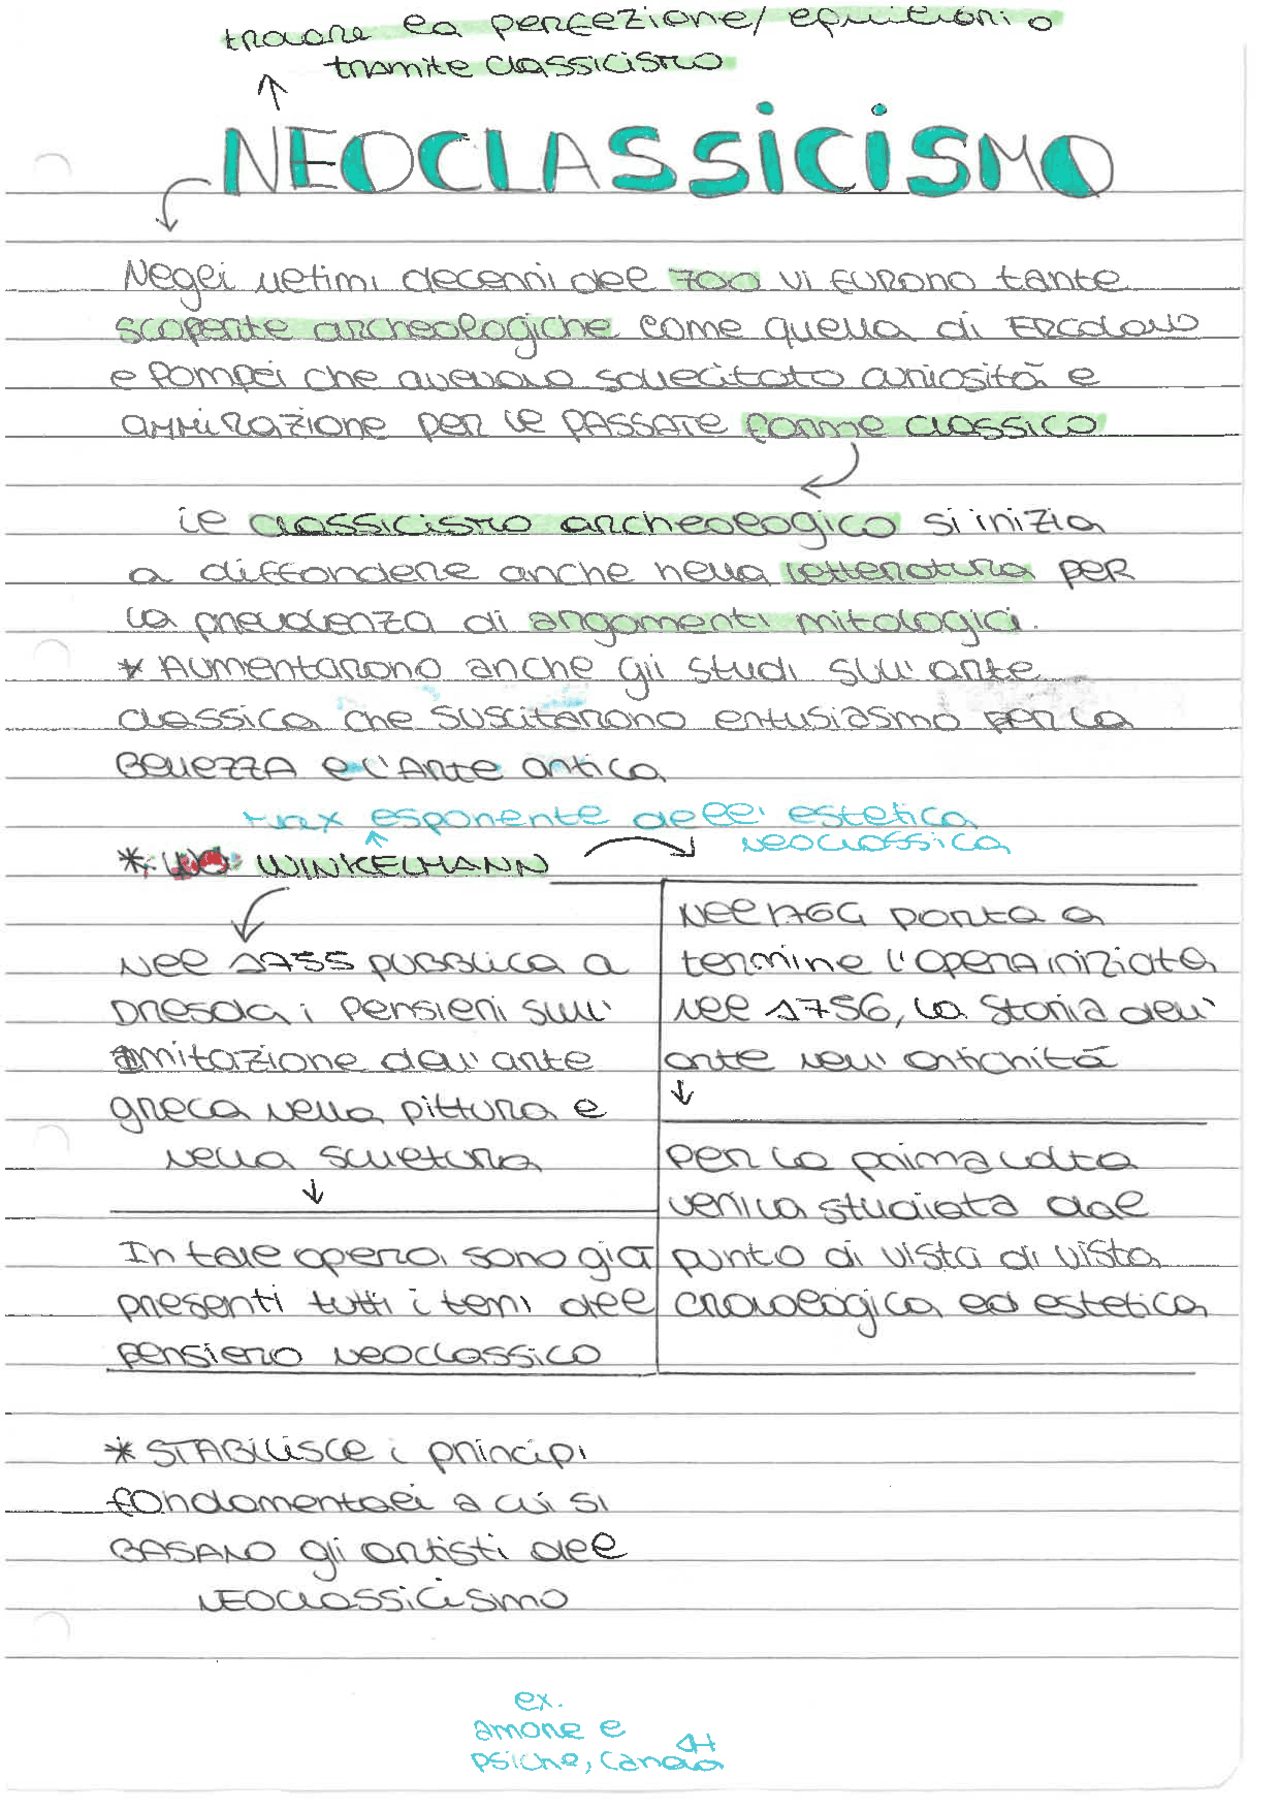 trovare la percezione/equilibrio
tramite classicismo
NEOCLASSICISMO
Negli ultimi decenni del 700 vi furono tante
scoperte archeologiche come quella di ERCOLANO
e Pompei che avevano sollecitato curiosità e
AMMIRAZIONE per le PASSATE forme classico
il classicismo archeologico si inizia
a diffondere anche nella letteratura PER
la prevalenza di argomenti mitologici.
* AUMENTARONO anche gli studi sull'arte
classica che suscitarono entusiasmo per la
BELLEZZA e l'Arte antica
max esponente dell'estetica
neoclassica
* WINKELMANN
Nel 1755 pubblica a
Dresda i pensieri sull'
imitazione dell'arte
greca nella pittura e
nella scultura
In tale opera sono già
presenti tutti i temi del
pensiero neoclassico
Nel 1764 porta a
termine l'opera iniziata
nel 1756, la Storia dell'
arte nell'antichità
per la prima volta
studiata dal
punto di vista di vista
cronologica ed estetica
* STABILISCE i principi
fondamentali a cui si
BASANO gli artisti del
NEOCLASSICISMO
ex.
amore e
psiche,